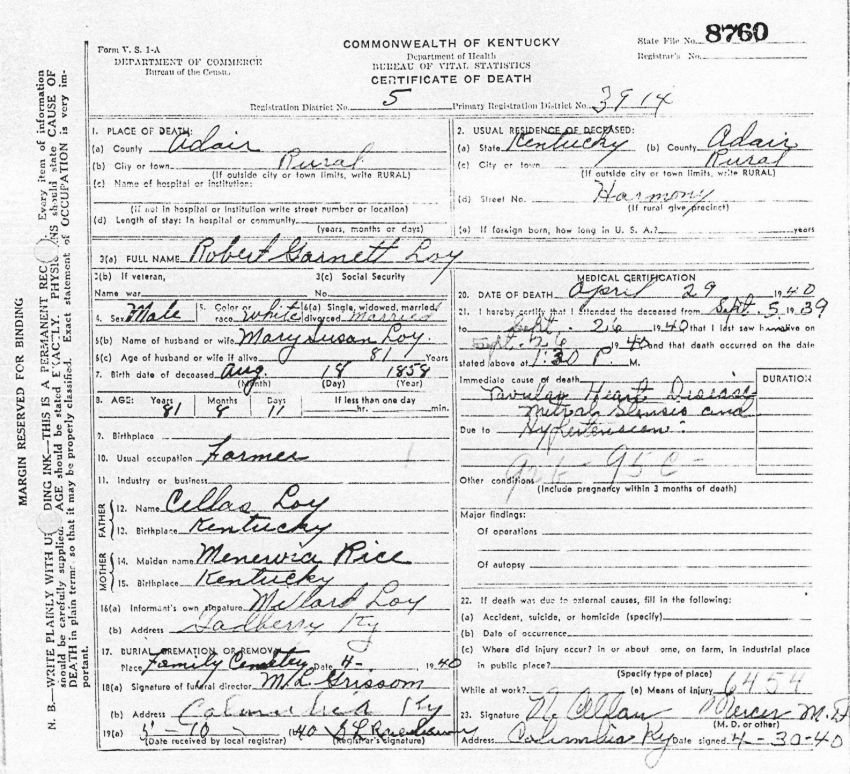 Form V. S. 1-A
DEPARTMENT OF COMMERCE
Bureau of the Census
COMMONWEALTH OF KENTUCKY
Department of Health
BUREAU OF VITAL STATISTICS
CERTIFICATE OF DEATH
State File No. 8760
Registrar's No.
Registration District No. 5 Primary Registration District No. 3914
MARGIN RESERVED FOR BINDING
N. B.—WRITE PLAINLY WITH DING INK—THIS IS A PERMANENT REC Every item of information
should be carefully supplied. AGE should be stated EXACTLY. PHYSIC NS should state CAUSE OF
DEATH in plain terms so that it may be properly classified. Exact statement of OCCUPATION is very im-
portant.
1. PLACE OF DEATH:
(a) County Adair
(b) City or town Rural
(If outside city or town limits, write RURAL)
(c) Name of hospital or institution:
(If not in hospital or institution write street number or location)
(d) Length of stay: In hospital or community
(years, months or days)
2. USUAL RESIDENCE OF DECEASED:
(a) State Kentucky (b) County Adair
(c) City or town Rural
(If outside city or town limits, write RURAL)
(d) Street No. Harmony
(If rural give precinct)
(e) If foreign born, how long in U. S. A.? years
3(a) FULL NAME Robert Garnett Loy
3(b) If veteran,
Name war
3(c) Social Security
No.
4. Sex Male 5. Color or race White 6(a) Single, widowed, married, divorced Married
6(b) Name of husband or wife Mary Susan Loy.
6(c) Age of husband or wife if alive 81 Years
7. Birth date of deceased Aug. 18 1858
(Month) (Day) (Year)
8. AGE: Years Months Days If less than one day
81 8 11 hr. min.
9. Birthplace
10. Usual occupation Farmer
11. Industry or business
FATHER
12. Name Cellas Loy
13. Birthplace Kentucky
MOTHER
14. Maiden name Menervia Rice
15. Birthplace Kentucky
16(a) Informant's own signature Millard Loy
(b) Address Ky
17. BURIAL, CREMATION OR REMOVAL
Place Family Cemetery Date 4- 1940
18(a) Signature of funeral director M L Grissom
(b) Address Columbia Ky
19(a) 5-10 40
(Date received by local registrar) (Registrar's signature)
MEDICAL CERTIFICATION
20. DATE OF DEATH April 29 1940
21. I hereby certify that I attended the deceased from Sept. 5 1939
to Sept. 26 1940 that I last saw him alive on
Sept. 26 1940 and that death occurred on the date
stated above at 1:30 P. M.
Immediate cause of death DURATION
Heart Disease
Mitral Stenosis and
Due to Hypertension.
95 C
Other conditions
(Include pregnancy within 3 months of death)
Major findings:
Of operations
Of autopsy
22. If death was due to external causes, fill in the following:
(a) Accident, suicide, or homicide (specify)
(b) Date of occurrence
(c) Where did injury occur? in or about ome, on farm, in industrial place
in public place?
(Specify type of place)
While at work? (e) Means of injury 6454
23. Signature N. Mercer M.D
(M. D. or other)
Address Columbia Ky Date signed 4-30-40